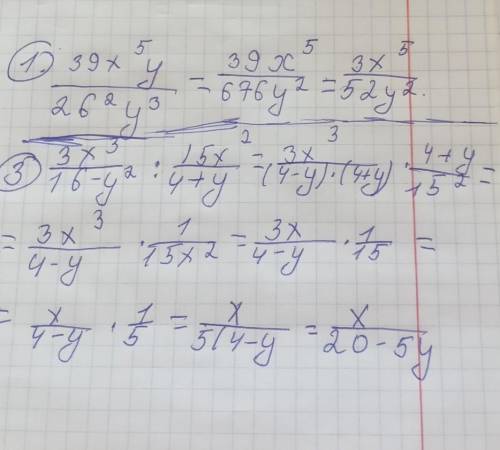 1) 39x⁵y / 26²y³ = 39x⁵ / 676y² = 3x⁵ / 52y².
3) 3x³ / 16-y² : 15x² / 4+y = 3x³ / (4-y)·(4+y) · 4+y / 15² =
= 3x³ / 4-y · 1 / 15x² = 3x / 4-y · 1 / 15 =
= x / 4-y · 1 / 5 = x / 5(4-y = x / 20-5y